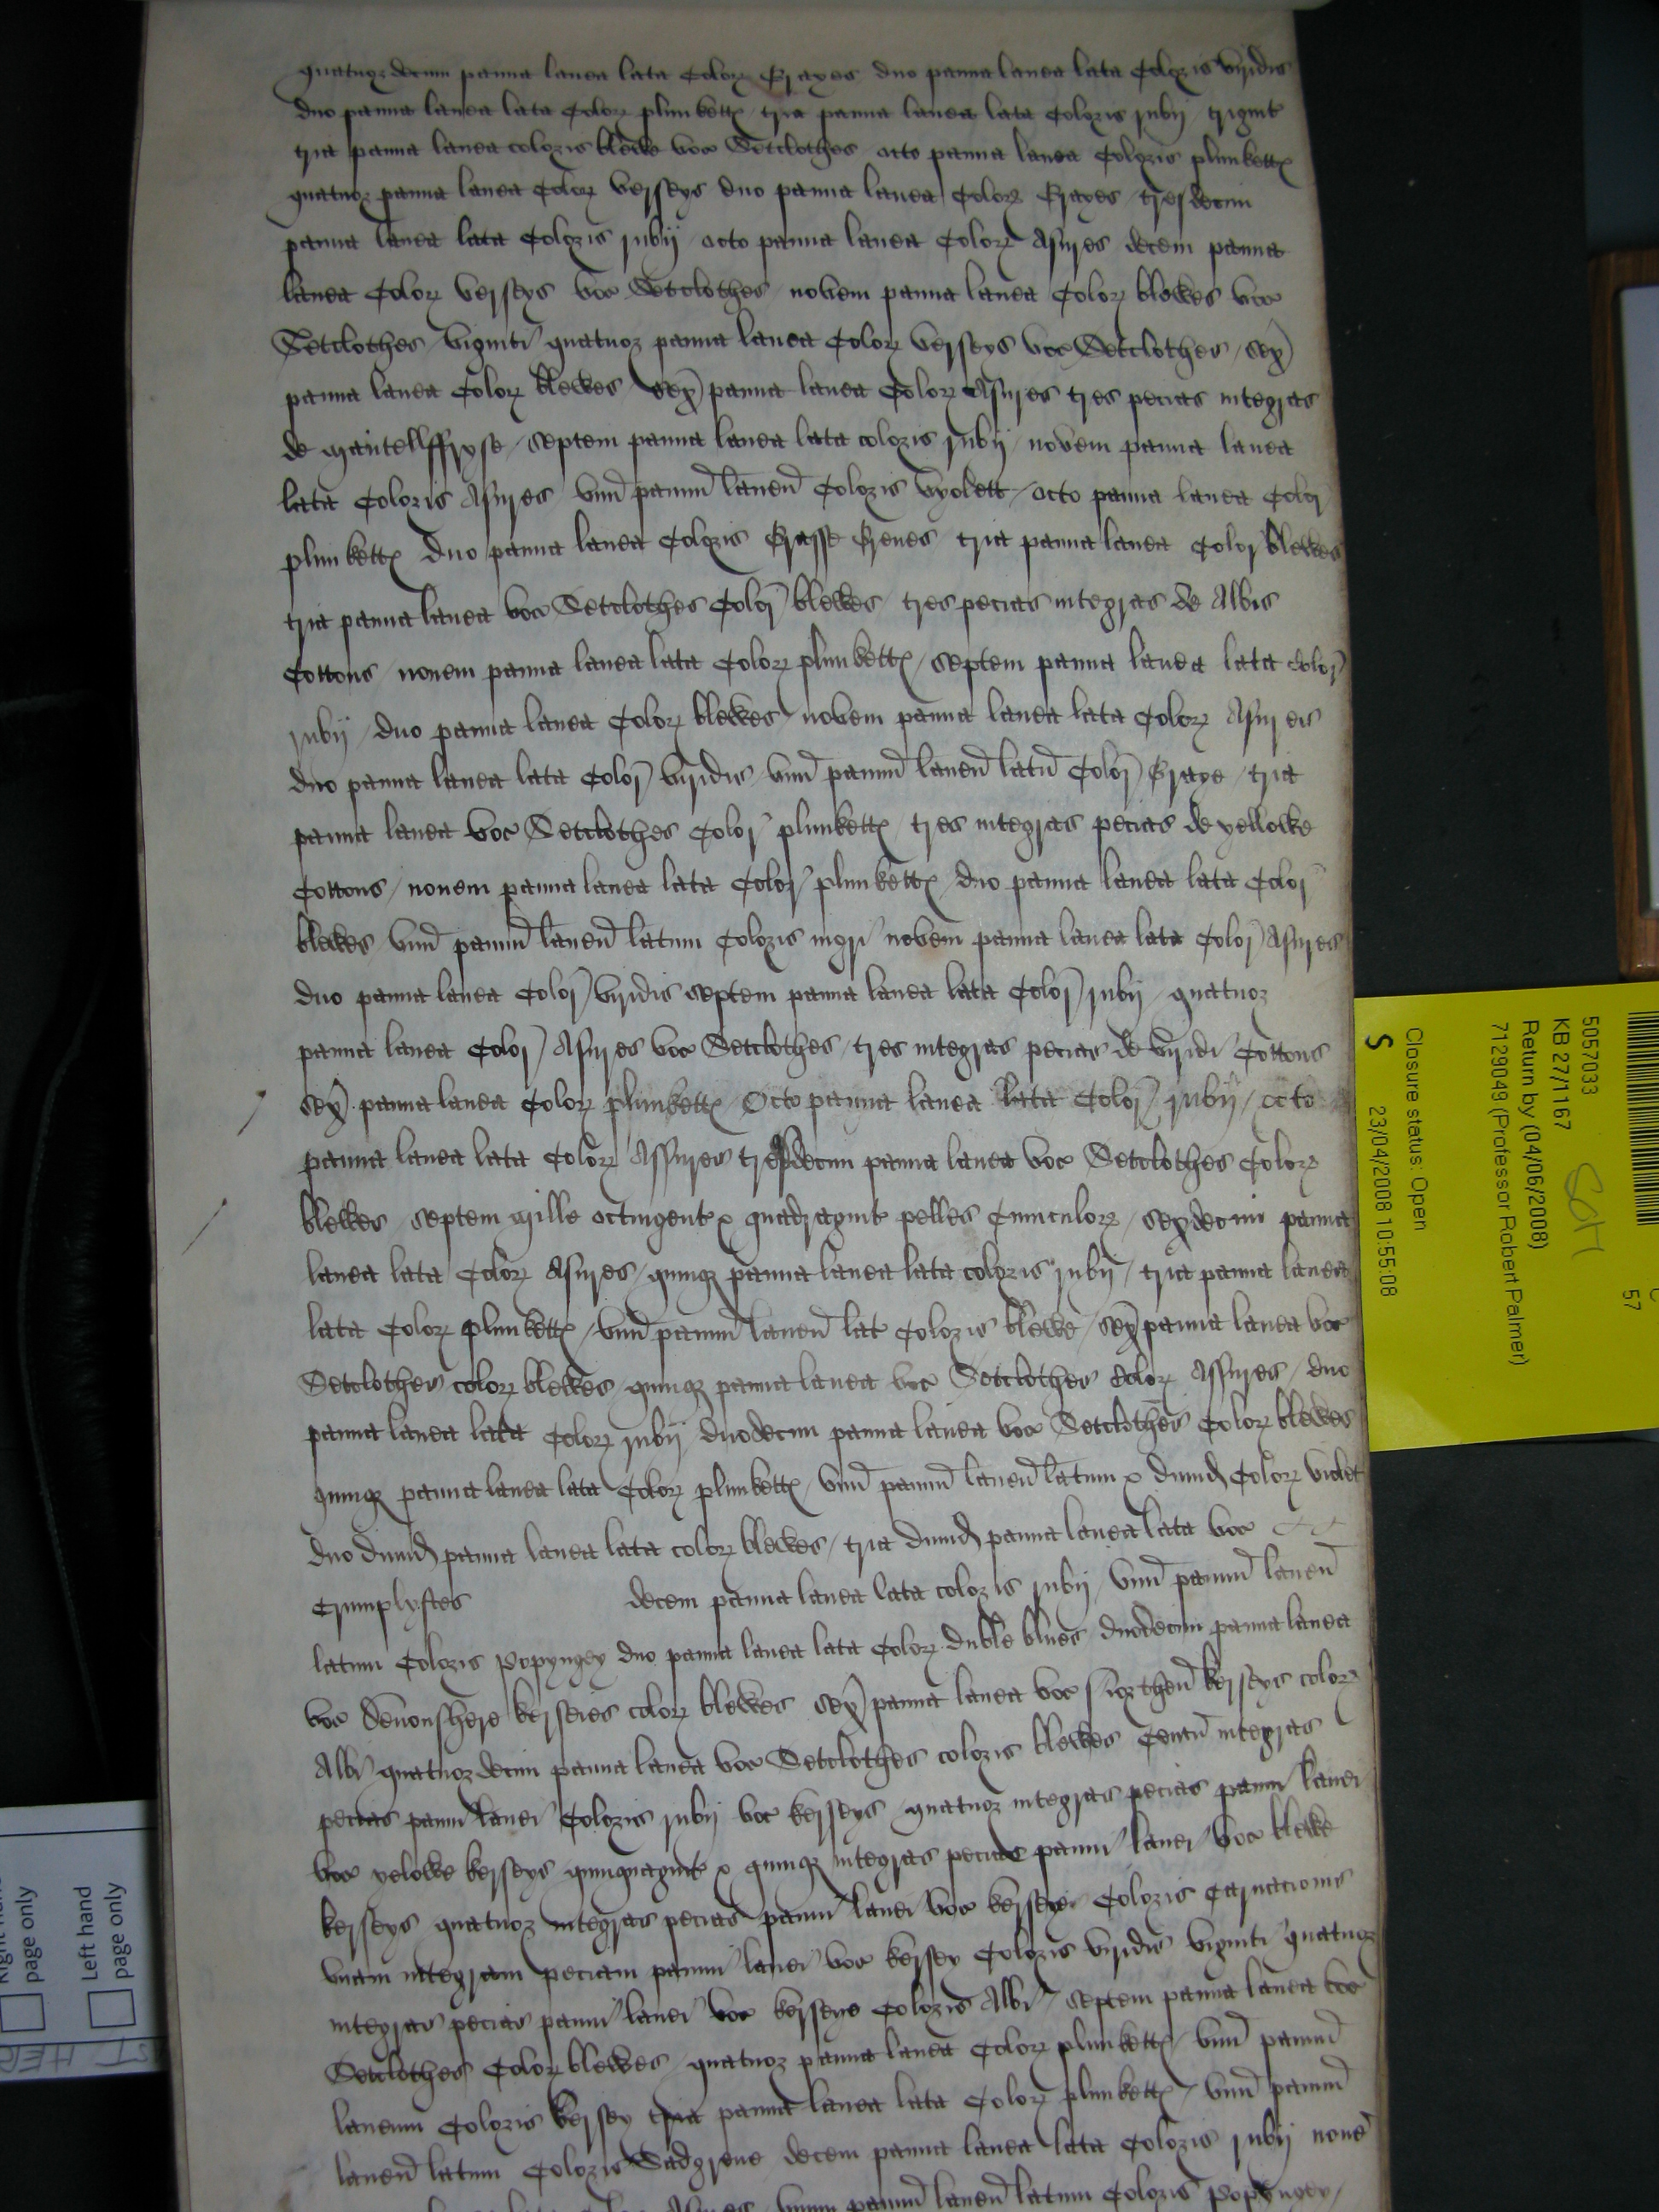 quatuordecim panna lanea lata Color Grayes duo panna lanea lata Coloris viridis
duo panna lanea lata Color plunkett / tria panna lanea lata Coloris rubij / trigint
tria panna lanea coloris blewe voc Setclothes octo panna lanea Coloris plunkett
quatuor panna lanea Color verseys duo panna lanea Color Grayes / tresdecim
panna lanea lata Coloris rubij / octo panna lanea Color Asures decem panna
lanea Color verseys voc Setclothes / novem panna lanea Color blewes voc
Setclothes / viginti quatuor panna lanea Color verseys voc Setclothes / sex
panna lanea Color blewes / sex panna lanea Color Asures tres pecias integras
de mantellffryse / septem panna lanea lata coloris rubij / novem panna lanea
lata Coloris Asures / unu pannu laneu Coloris vyolett / octo panna lanea Color
plunkett duo panna lanea Coloris Grasse Grenes tria panna lanea Color blewes
tria panna lanea voc Setclothes Color blewes / tres pecias integras de Albis
Cottons / novem panna lanea lata Color plunkett / septem panna lanea lata Color
rubij / duo panna lanea Color blewes / novem panna lanea lata Color Asureis
duo panna lanea lata Color viridis / unu pannu laneu latu Color Graye / tria
panna lanea voc Setclothes Color plunkett / tres integras pecias de yellowe
Cottons / novem panna lanea lata Color plunkett / duo panna lanea lata Color
blewes / unu pannu laneu latum Coloris nigri novem panna lanea lata Color Asures
duo panna lanea Color viridis septem panna lanea lata Color rubij / quatuor
panna lanea Color Asures voc Setclothes / tres integras pecias de viridi Cottons
sex panna lanea Color plunkett / Octo panna lanea lata Color rubij / octo
panna lanea lata Color Assures tresdecim panna lanea voc Setclothes Color
blewes / septem mille octingent & quadragint pelles Cuniculor / sexdecim panna
lanea lata Color Asures / quinq panna lanea lata coloris rubij / tria panna lanea
lata Color plunkett / unu pannu laneu lat Coloris blewe / sex panna lanea voc
Setclothes color blewes / quinq panna lanea voc Setclothes Color Assures / duo
panna lanea lata Color rubij duodecim panna lanea voc Setclothes Color blewes
quinq panna lanea lata Color plunkett / unu pannu laneu latum & dimid Color violet
duo dimid panna lanea lata color blewes / tria dimid panna lanea lata voc
Crumplystes decem panna lanea lata coloris rubij / unu pannu laneu
latum Coloris Popyngey duo panna lanea lata Color duble blues / duodecim panna lanea
voc Denonshere kerseies color blewes sex panna lanea voc Northen kerseys color
Albi / quatuordecim panna lanea voc Setclothes coloris blewes Centu integras
pecias panni lanei Coloris rubij voc kerseys / quatuor integras pecias panni lanei
voc yelowe kerseys quinquagint & quinq integras pecias panni lanei voc blewe
kerseys quatuor integras pecias panni lanei voc kerseye Coloris Carnacionis
unam integram peciam panni lanei voc kersey Coloris viridis viginti quatuor
integras pecias panni lanei voc kerseye Coloris Albi / septem panna lanea voc
Setclothes Color blewes / quatuor panna lanea Color plunkett / unu pannu
laneum Coloris kersey tria panna lanea lata Color plunkett / unu pannu
laneu latum Coloris Sadgrene decem panna lanea lata Coloris rubij nove
Asures / unum pannu laneu latum Coloris Popyngey /
5057033
KB 27/1167
Return by (04/06/2008)
7129049 (Professor Robert Palmer)
Closure status: Open
S 23/04/2008 10:55:08
57
page only
Left hand
page only